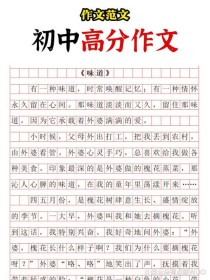 作文范文
初中高分作文
《味道》
有一种味道，时常唤醒记忆；有一种情怀
永久留在心间。那味道淡淡而又久，留住那味
道，因为它承载着外婆满满的爱。
小时候，父母外出打工，把我丢到农村，
由外婆看管。外婆心灵手巧，总喜欢给我做各
种美食。印象最深的是外婆做的槐花蒸菜，那
沁人心脾的味道，在我的童年里荡漾开来……
四五月份，是槐花树肆意生长，盛情绽放
的季节。一大早，外婆叫我和她去摘槐花，听
到这话，我特别兴奋，我好奇地问外婆：“外
婆，槐花长什么样子啊？我们为什么要摘槐花
呀？”外婆“咯，”“咯”地笑着，像一只老母